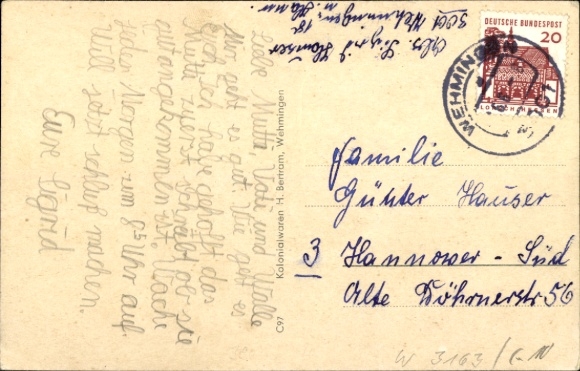 Abs. Sigrid Hauser
3001 Wehmingen 18
ü. Hann.
Liebe Mutti, Vati und Walle
Mir geht es gut. Wie geht es
Euch. Ich habe gehofft das
Mutti zuerst schreibt aber sie
angekommen ist. Wache
jeden Morgen um 8 Uhr auf.
Will jetzt schluß machen.
Eure Sigrid
C97
Kolonialwaren H. Bertram, Wehmingen
DEUTSCHE BUNDESPOST
20
WEHMINGEN
Familie
Günter Hauser
3 Hannover - Süd
Alte Döhrenerstr 56
W 3163